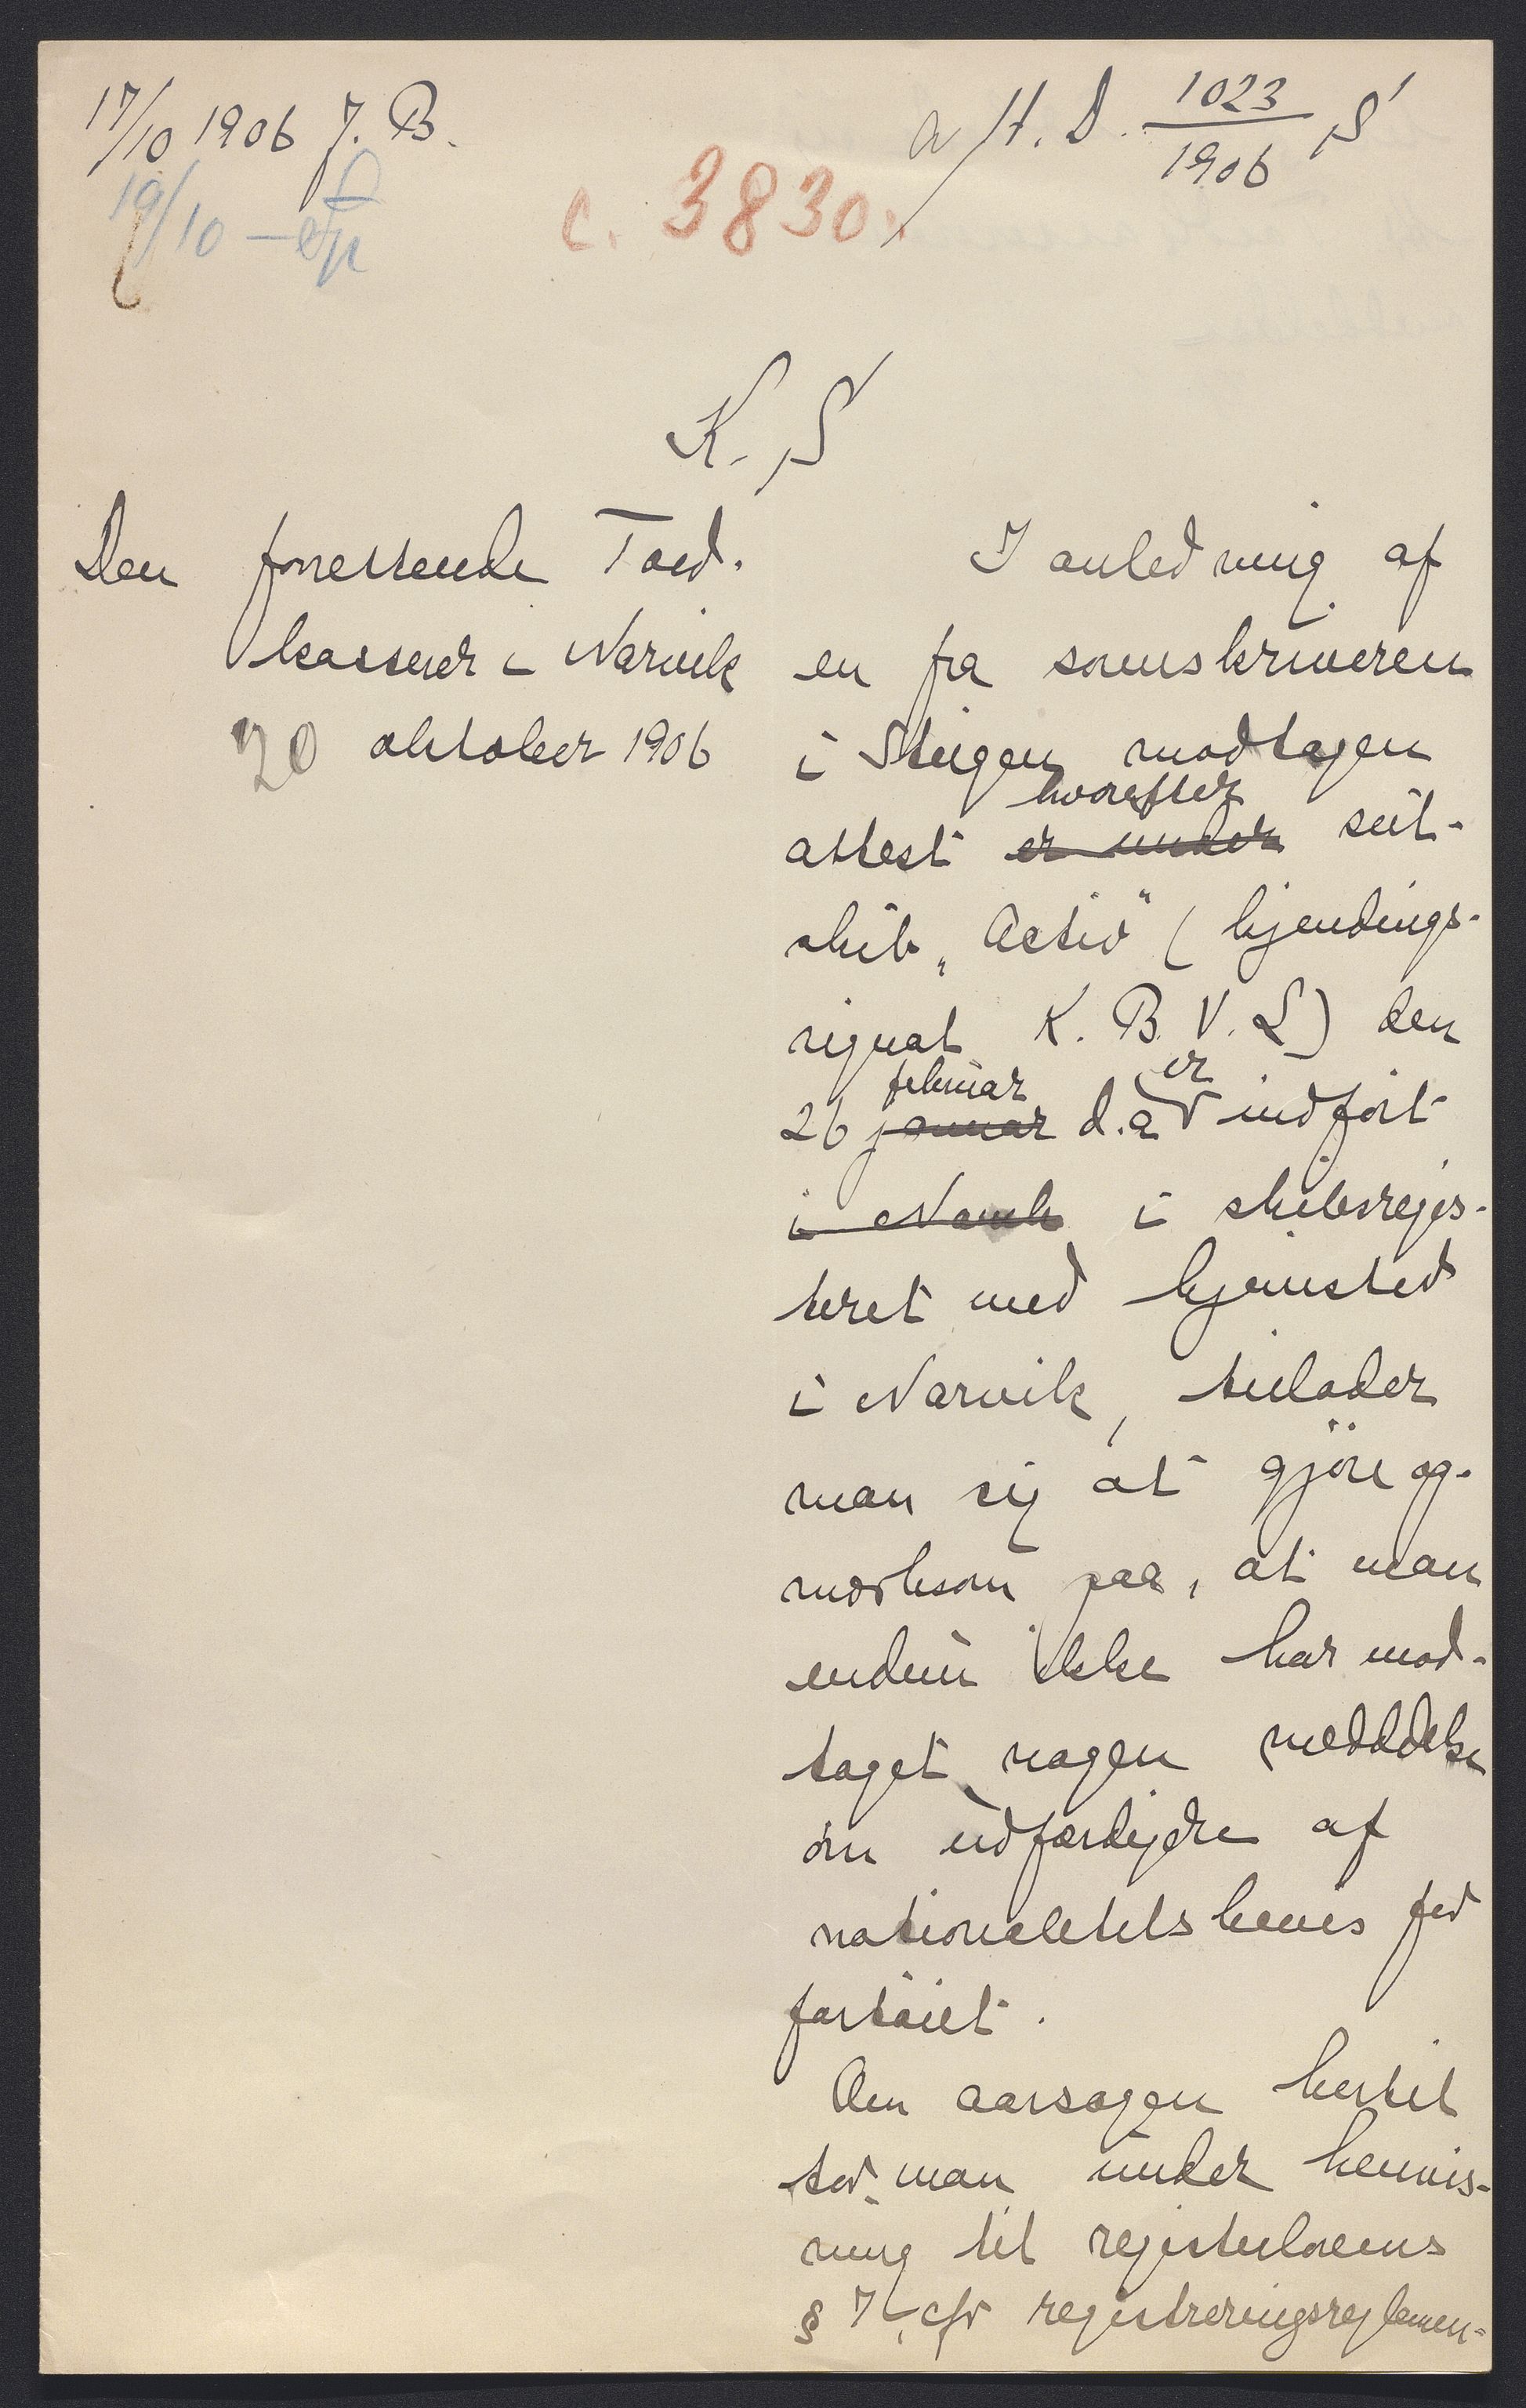 17/10 1906 J. B.
a/H. D. 1023/1906 S
19/10 –
c. 3830.
K. S
Den forrettende Told-
kasserer i Narvik
20 oktober 1906
I anledning af
en fra sorenskriveren
i Steigen modtagen
attest er under hvorefter seil-
skib „Activ" (kjendings-
signal K. B. V. L) den
26 januar februar d.a er indført
i Narvik i skibsregis-
teret med hjemsted
i Narvik, tillader
man sig at gjöre op-
mærksom paa, at man
endnu ikke har mod-
taget nogen meddelelse
om udfærdigelse af
nationalitetsbevis for
fartøiet.
Om aarsagen hertil
tør man under henvis-
ning til registerlovens
§ 7, cfr registreringsreglemen-